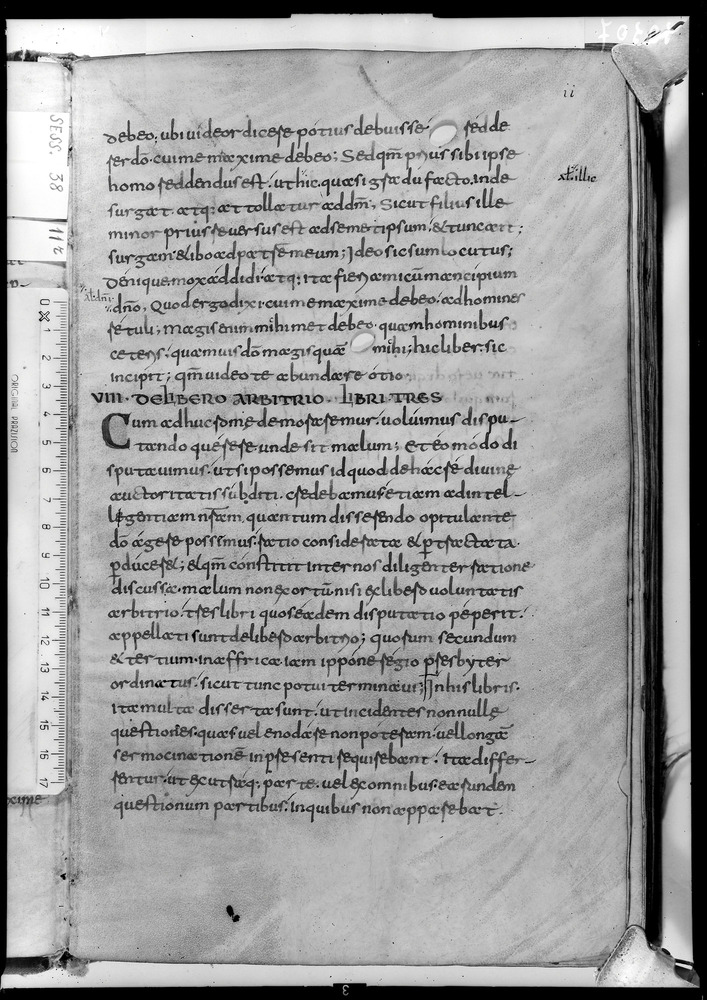 ii
debeo; ubi uideor dicere potius debuisse redde
re rdō. cui me maxime debeo; Sed qm̄ prius sibi ipse
homo reddendus est. ut hic. quasi gradu facto. inde
surgat. atq; attollatur ad dm̄; Sicut filius ille
minor prius reuersus est ad semetipsum; & tunc ait;
surgam & ibo ad patrē meum; Ideo sic sum locutus;
Denique mox addidi. atq; ita fieri amicū mancipium
dn̄o. Quod ergo dixi. cui me maxime debeo. ad homines
retuli; magis enim mihimet debeo. quam hominibus
ceteris. quamuis dō magis quā mihi; hic liber sic
incipit; qm̄ video te abundare otio.
VIIII. DE LIBERO ARBITRIO. LIBRI TRES
Cum adhuc rome demoraremur. uoluimus dispu-
tando querere. unde sit malum; et eo modo di
sputauimus. ut si possemus id quod de hac re diuinę
auctoritatis subditi. credebamus. etiam ad intel-
legentiam nr̄am. quantum disserendo opitulante
dō agere possemus. ratio considerata & ptractata
pducer&; & qm̄ constitit inter nos diligenter ratione
discussa. malum non exortū. nisi ex libero uoluntatis
arbitrio. tres libri quos eadem disputatio peperit.
appellati sunt de libero arbitrio; quorum secundum
& tertium. in affrica iam ippone regio presbyter
ordinatus. sicut tunc potui terminaui; In his libris.
ita multa disserta sunt. ut incidentes non nullę
questiones. quas uel enodare non poteram. uel longā
sermocinationē in presenti requirebant. ita differ-
rentur. ut ex utraq; parte. uel ex omnibus earundem
questionum partibus. in quibus non apparebat.
SESS. 38
0 1 2 3 4 5 6 7 8 9 10 11 12 13 14 15 16 17
3